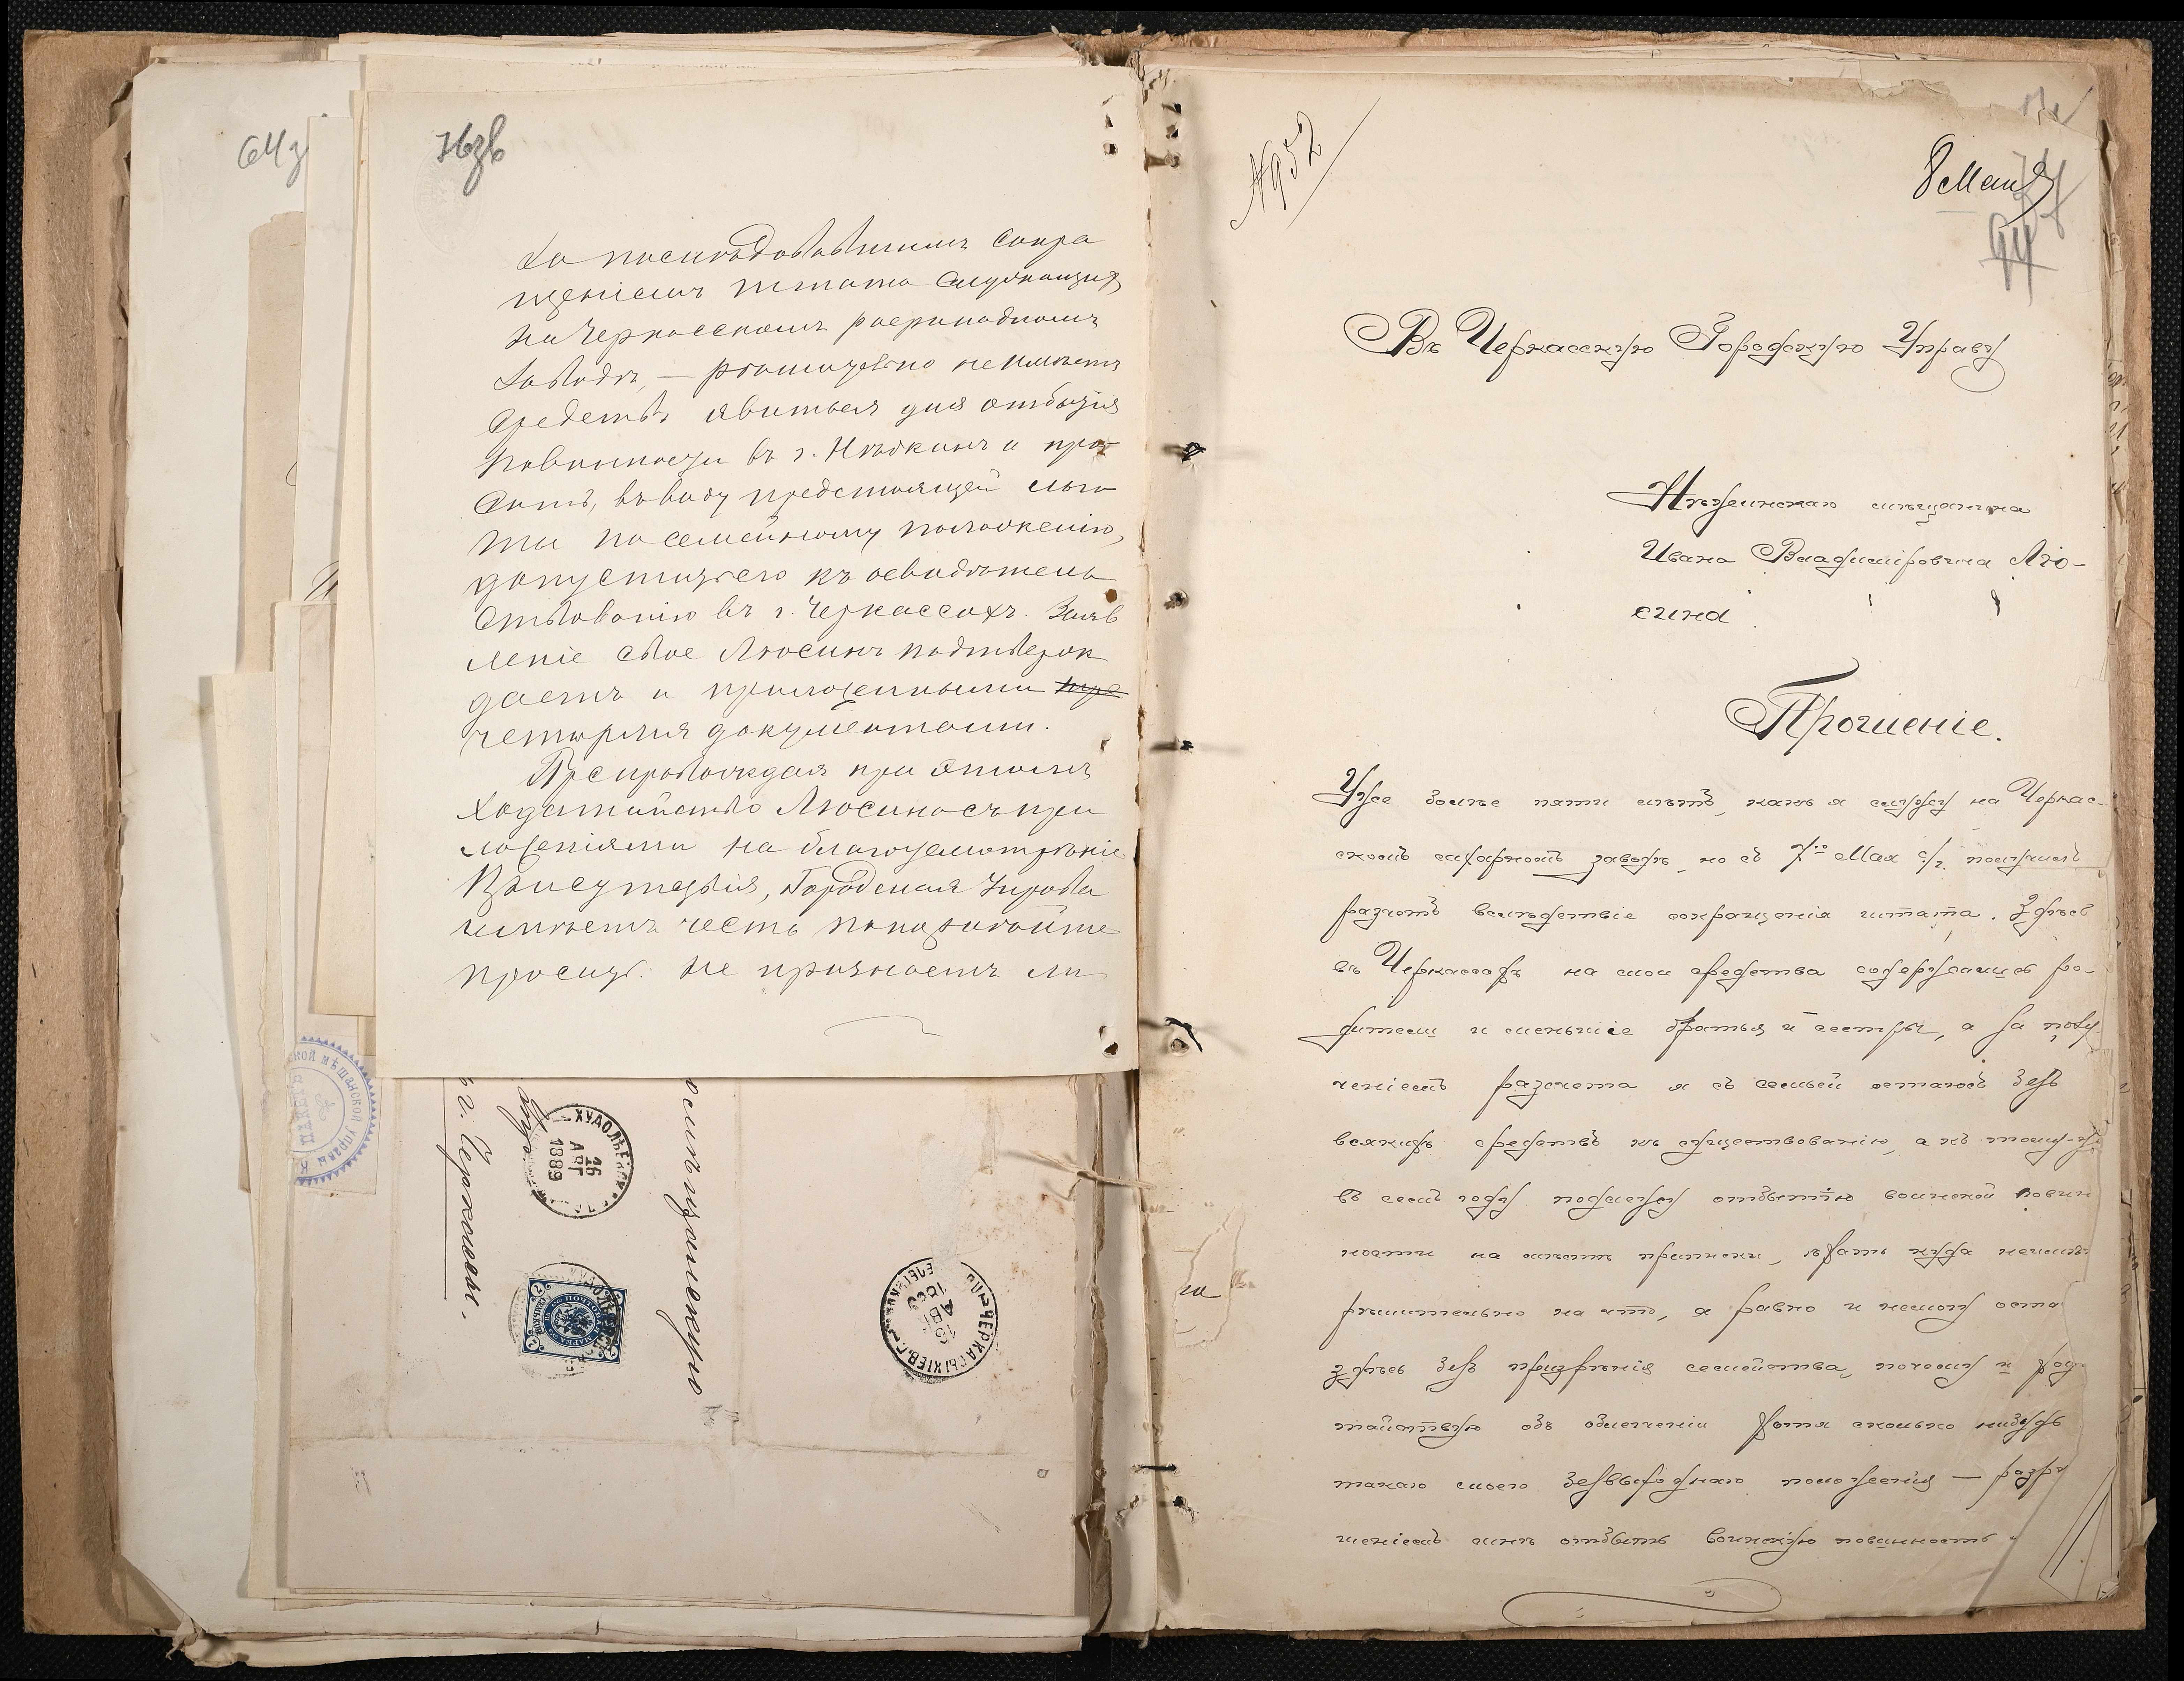 64з
76зв
За последовавшимъ сокра
щеніемъ штата служащихъ
на Черкасскомъ рафинадномъ
заводѣ, — рѣшительно не имѣетъ
средствъ явиться для отбытія
повинности въ г. Нѣжинъ и про-
ситъ, въ виду предстоящей льго
ты по семейному положенію,
допустить его къ освидѣтель
ствованію въ г. Черкассахъ. Заяв
леніе свое Люсинъ подтверж
даетъ и приложенными
четырмя документами.
Препровождая при этомъ
ходатайство Люсина съ при
ложеніями на благоусмотрѣніе
Присутствія, Городская Управа
имѣетъ честь покорнѣйше
просить: не признаетъ ли
кой мѣщанской управы
ХУДОЛѢЕВКА
16
АВГ
1889
г. Черкассы.
мѣщанскую
ПОЧТОВАЯ МАРКА
7
ЧЕРКАСЫ КІЕВ. Г.
АВГ
№952
8 Мая
77
94
Въ Черкасскую Городскую Управу
Нѣжинскаго мѣщанина
Ивана Владиміровича Лю-
сина
Прошеніе.
Уже болѣе пяти лѣтъ, какъ я служу на Черкас-
скомъ сахарномъ заводѣ, но съ 7го Мая с/г. получилъ
разчотъ вслѣдствіе сокращенія штата. Здѣсь
въ Черкассахъ на мои средства содержались ро-
дители и меньшіе братья и сестры, а за полу
ченіемъ разсчота я съ семьей остаюсь безъ
всякихъ средствъ къ существованію, а къ тому-ж
въ семъ году подлежу отбытію воинской повин
ности на мѣстѣ приписки, ѣхать куда неимѣю
рѣшительно на что, а равно и немогу оста
здѣсь безъ призрѣнія семейства, почему и ход
тайствую объ облегченіи хотя сколько нибудь
такаго моего безвыходнаго положенія — разрѣ
шеніемъ мнѣ отбыть воинскую повинность